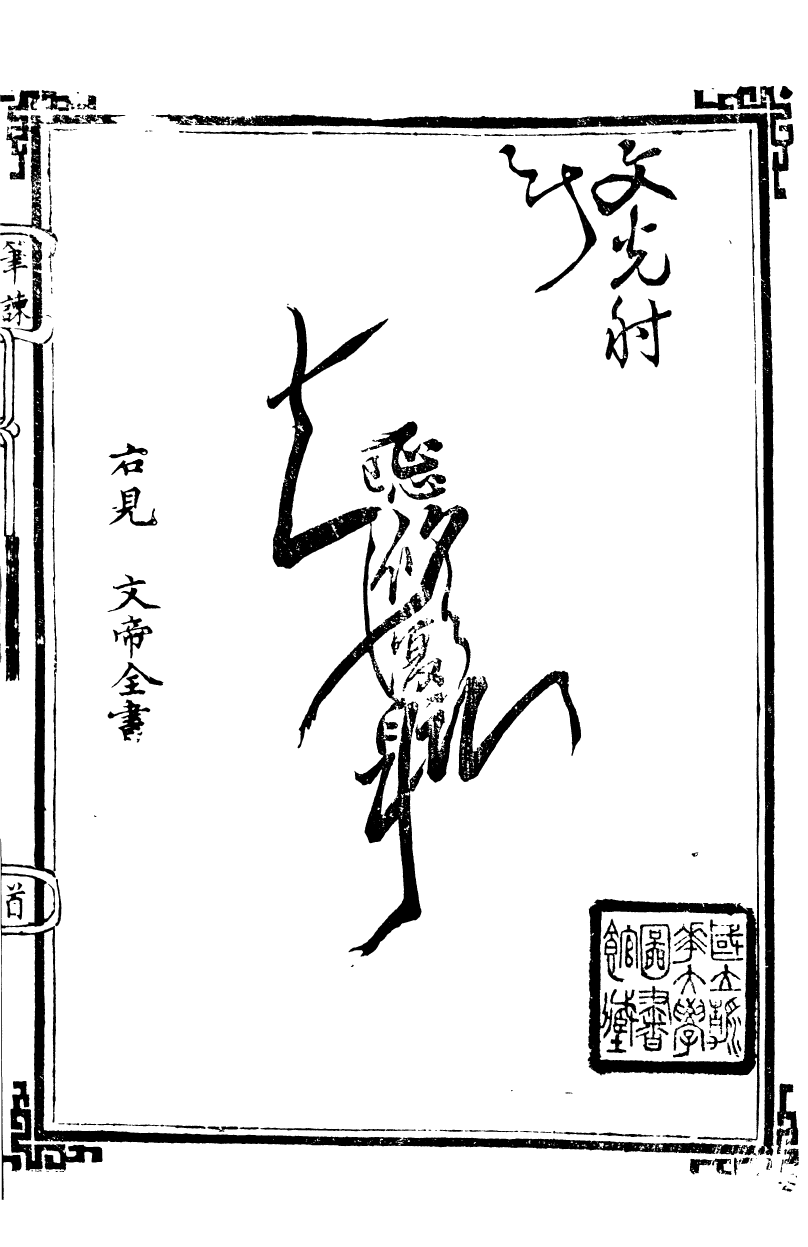 文光射
斗
右見　文帝全書
筆諫
首
國立清
華大學
圖書
館藏